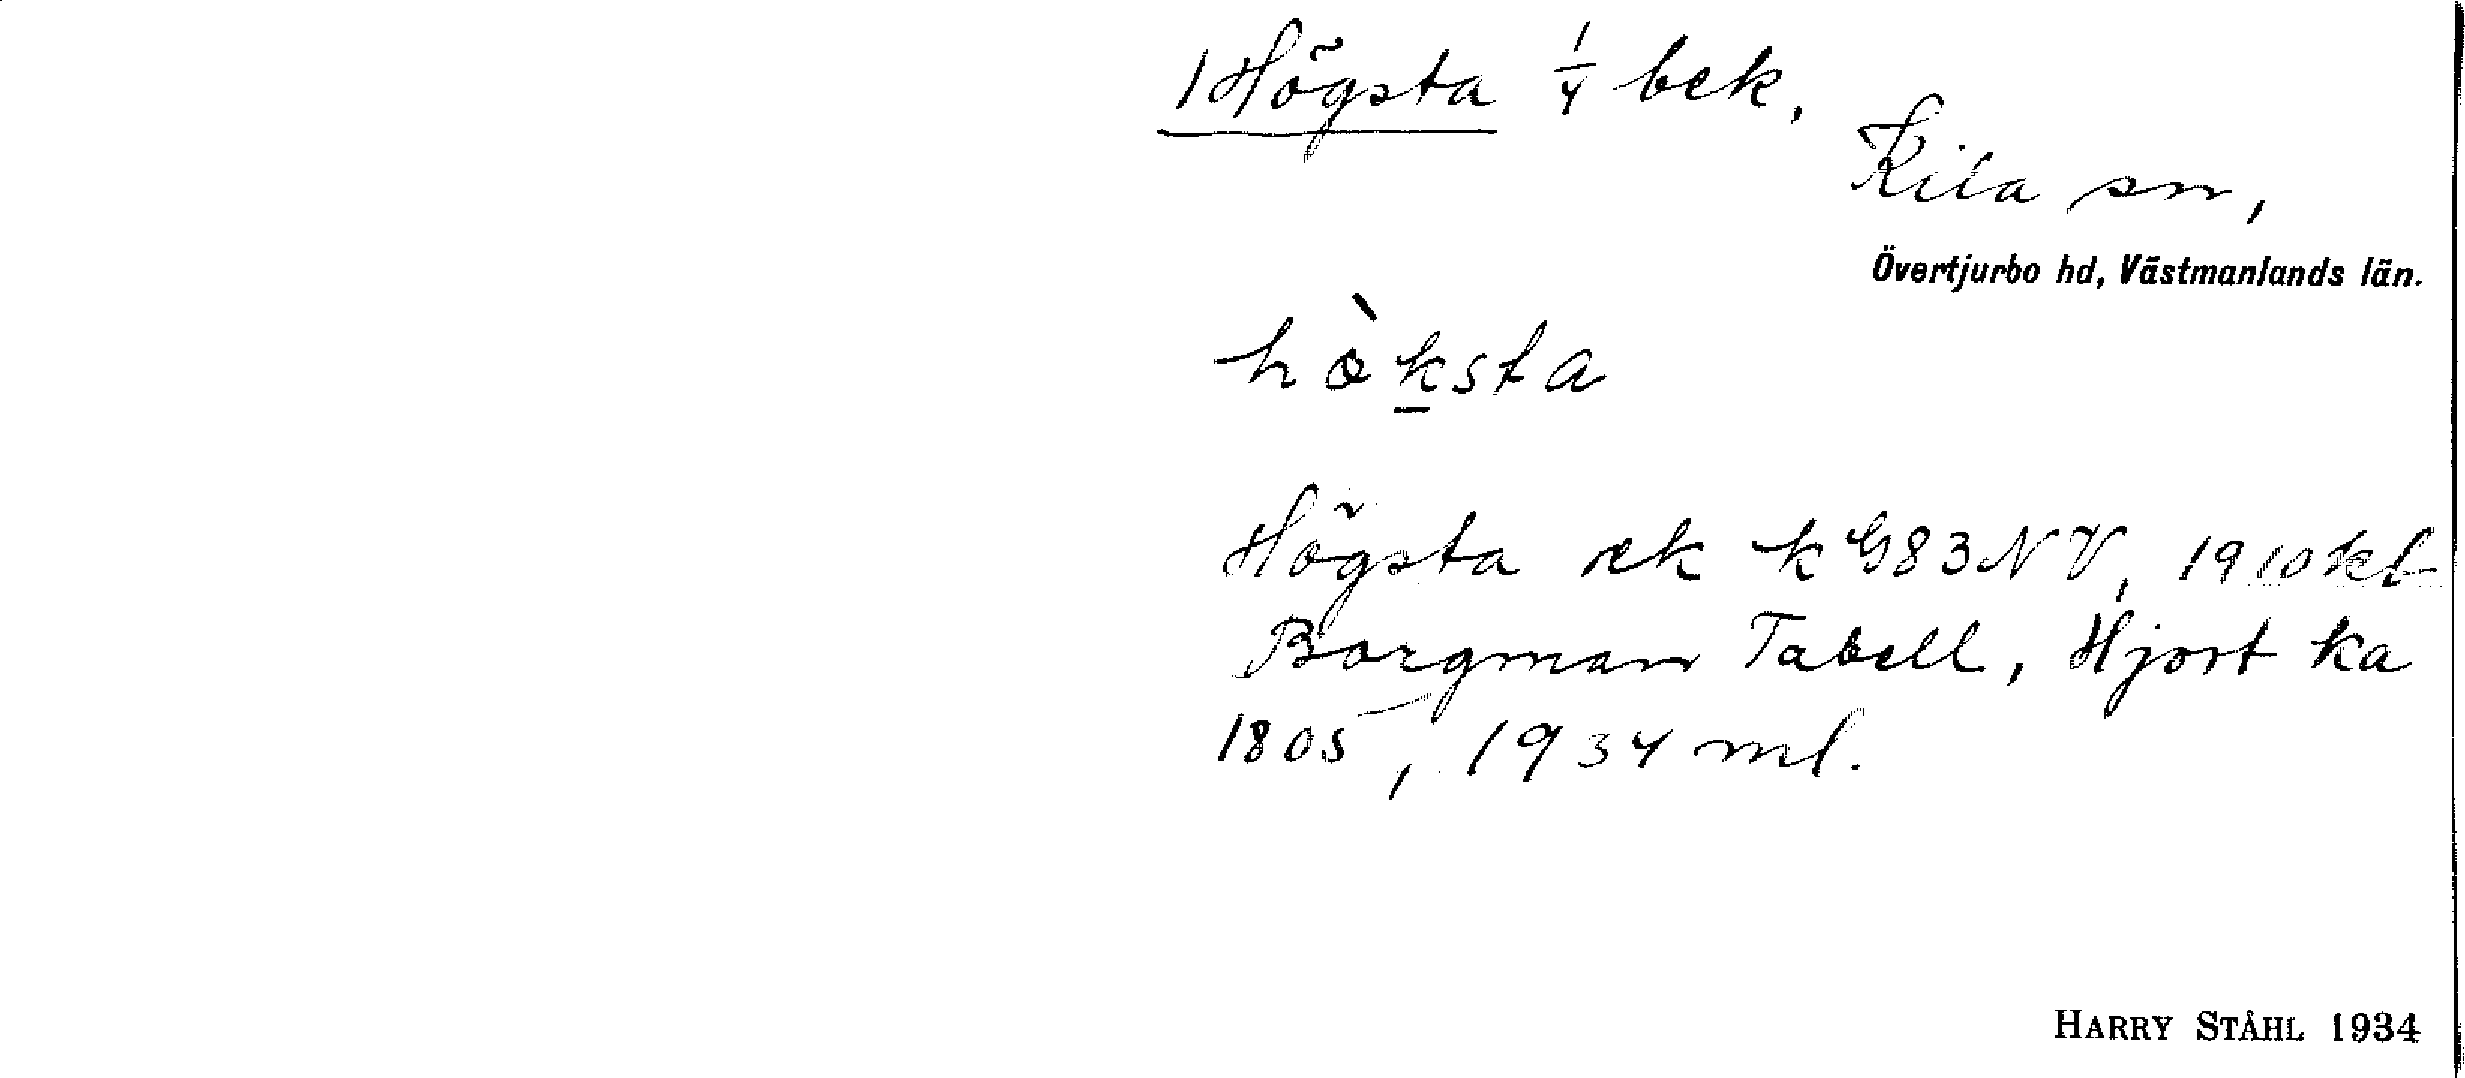 Högsta 1/4 bek,
Kila sn,
Övertjurbo hd, Västmanlands län.
hò̀ksta
Högsta ek k G83NV, 1910 kl
Borgman Tabell, Hjort ka
1805, 1934 ml.
HARRY STÅHL 1934